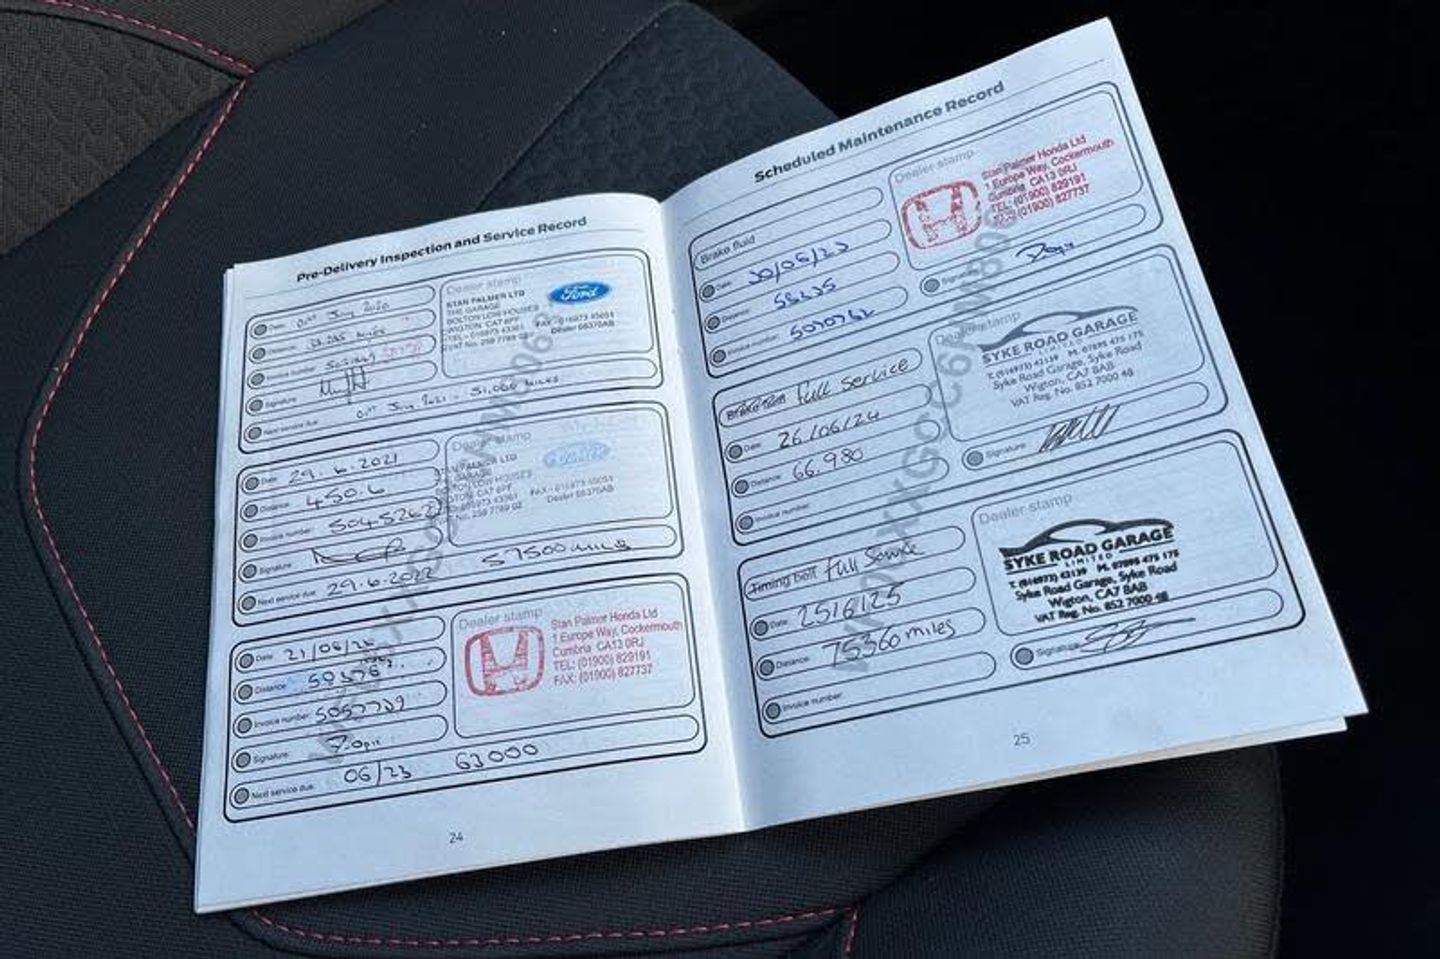 Pre-Delivery Inspection and Service Record
Date: 01st July 2020
Distance: miles
Invoice number:
Signature:
Next service due: 01st July 2021 - 51,000 miles
Dealer stamp
STAN PALMER LTD
THE GARAGE
BOLTON LOW HOUSES
WIGTON CA7 8PF
TEL - 016973 43361 FAX - 016973 45051
VAT No. 256 7789 02 Dealer 66370AB
Ford
Date: 29.6.2021
Distance: 450.6
Invoice number: 5045262
Signature:
Next service due: 29.6.2022 57500 miles
Dealer stamp
STAN PALMER LTD
GARAGE
BOLTON LOW HOUSES
WIGTON CA7 8PF
016973 43361 FAX - 016973 45051
No. 256 7789 02 Dealer 66370AB
Date: 21/06/22
Distance: 58376
Invoice number: 5057729
Signature:
Next service due: 06/23 63000
Dealer stamp
Stan Palmer Honda Ltd
1 Europe Way, Cockermouth
Cumbria CA13 0RJ
TEL: (01900) 829191
FAX: (01900) 827737
24
Scheduled Maintenance Record
Brake fluid
Date: 30/06/23
Distance: 58335
Invoice number: 5070762
Dealer stamp
Stan Palmer Honda Ltd
1 Europe Way, Cockermouth
Cumbria CA13 0RJ
TEL: (01900) 829191
FAX: (01900) 827737
Signature:
Brake fluid Full Service
Date: 26/06/24
Distance: 66.980
Invoice number:
Dealer stamp
SYKE ROAD GARAGE
LIMITED
T. (016973) 42139 M. 07895 475 175
Syke Road Garage, Syke Road
Wigton, CA7 8AB
VAT Reg. No. 852 7000 48
Signature:
Timing belt Full Service
Date: 25/6/25
Distance: 75360 miles
Invoice number:
Dealer stamp
SYKE ROAD GARAGE
LIMITED
T. (016973) 42139 M. 07895 475 175
Syke Road Garage, Syke Road
Wigton, CA7 8AB
VAT Reg. No. 852 7000 48
Signature:
25